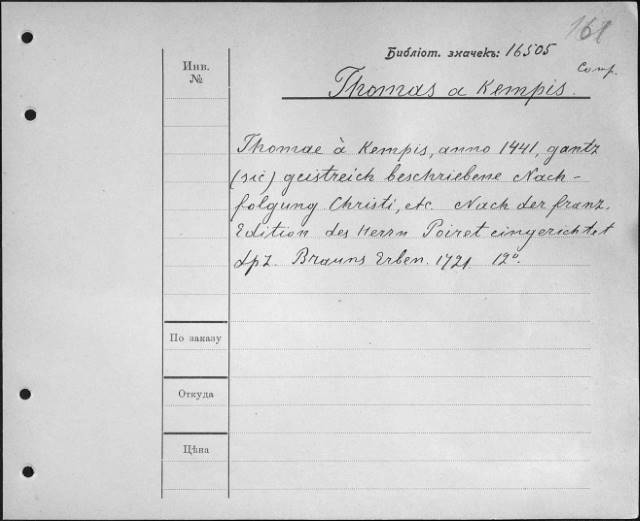 161
Библіот. значекъ: 16505
Comp.
Инв.
№
Thomas a Kempis.
Thomae à Kempis, anno 1441, gantz
(sic) geistreich beschriebene Nach-
folgung Christi, etc. Nach der franz.
Edition des Herrn Poiret eingerichtet
Lpz. Brauns Erben. 1721. 12°.
По заказу
Откуда
Цѣна